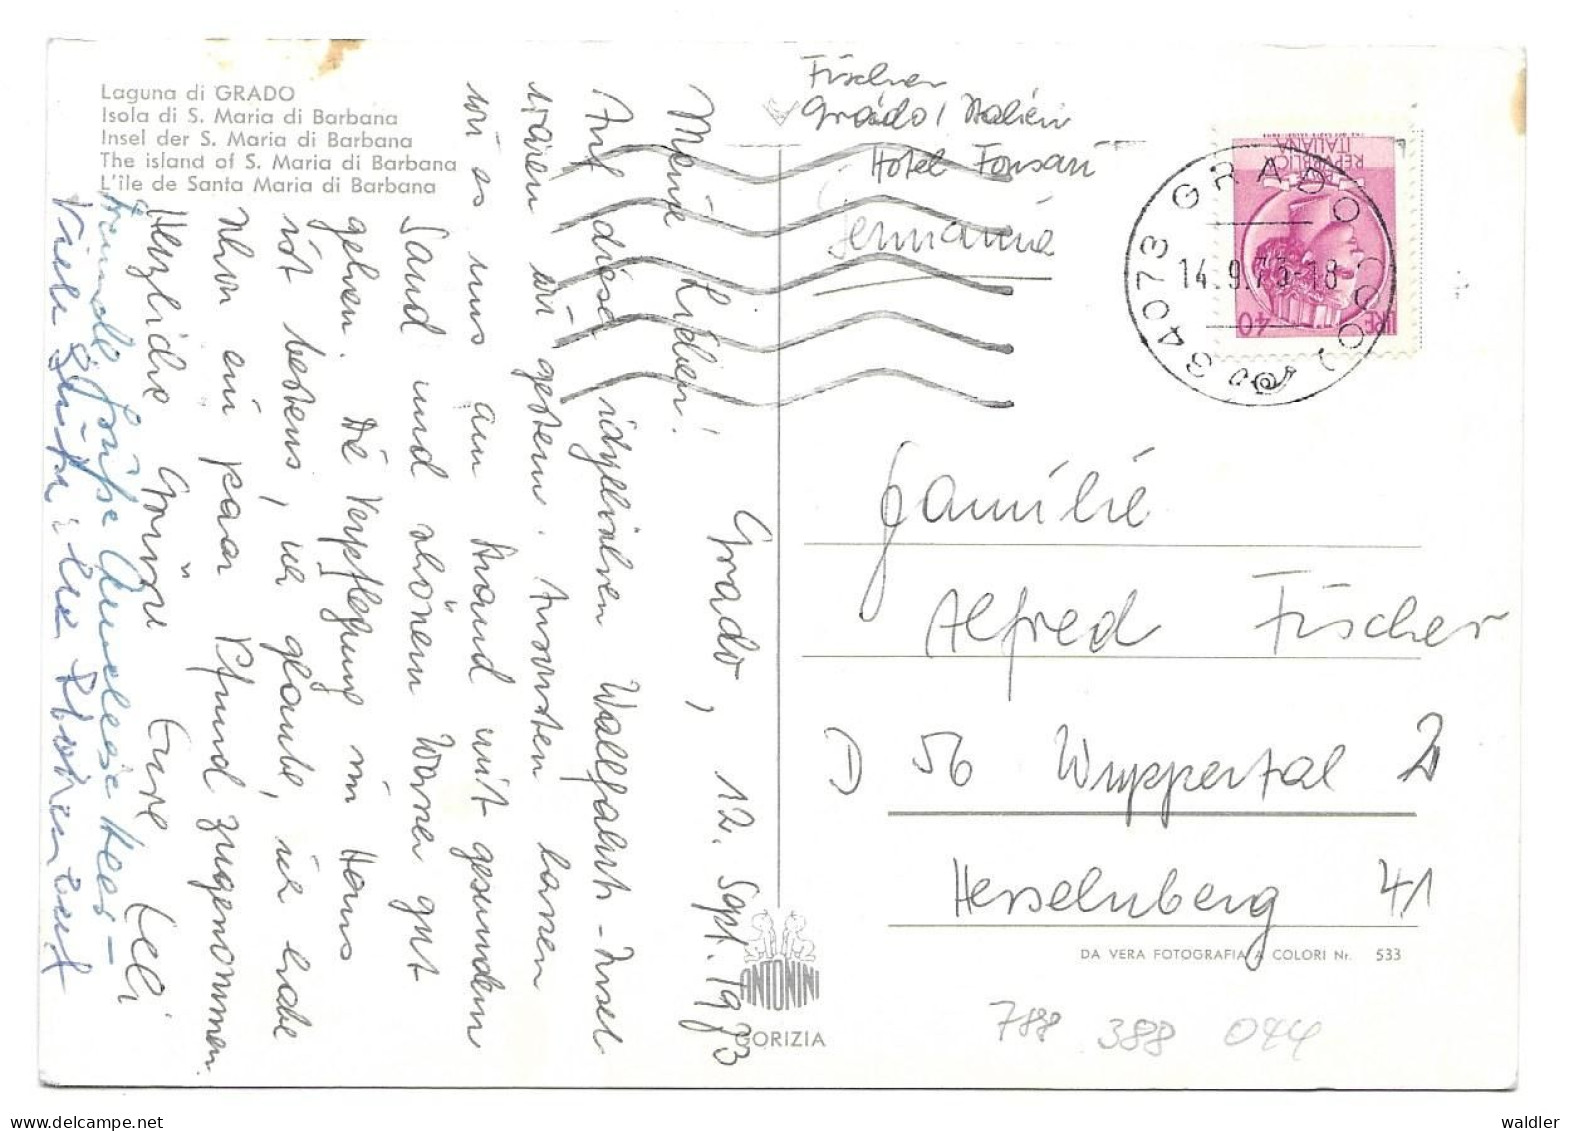 Laguna di GRADO
Isola di S. Maria di Barbana
Insel der S. Maria di Barbana
The island of S. Maria di Barbana
L'île de Santa Maria di Barbana
Fischer
Grado / Italien
Hotel
Germania
REPVBBLICA
ITALIANA
LIRE 40
34073 GRADO (GO)
14.9.73-18
Grado, 12. Sept. 1973
Meine Lieben!
Auf dieser idyllischen Wallfahrts-Insel
waren wir gestern. Ansonsten lassen
wir es uns am Strand mit gesundem
Sand und schönem Wasser gut
gehen. Die Verpflegung im Haus
ist bestens, ich glaube, ich habe
schon ein paar Pfund zugenommen
Herzliche Grüsse Eure Leli
Grüße Anneliese
Viele Grüße
Familie
Alfred Fischer
D 56 Wuppertal 2
Hesselnberg 41
DA VERA FOTOGRAFIA A COLORI Nr. 533
ANTONINI
GORIZIA
788 388 044
waldler